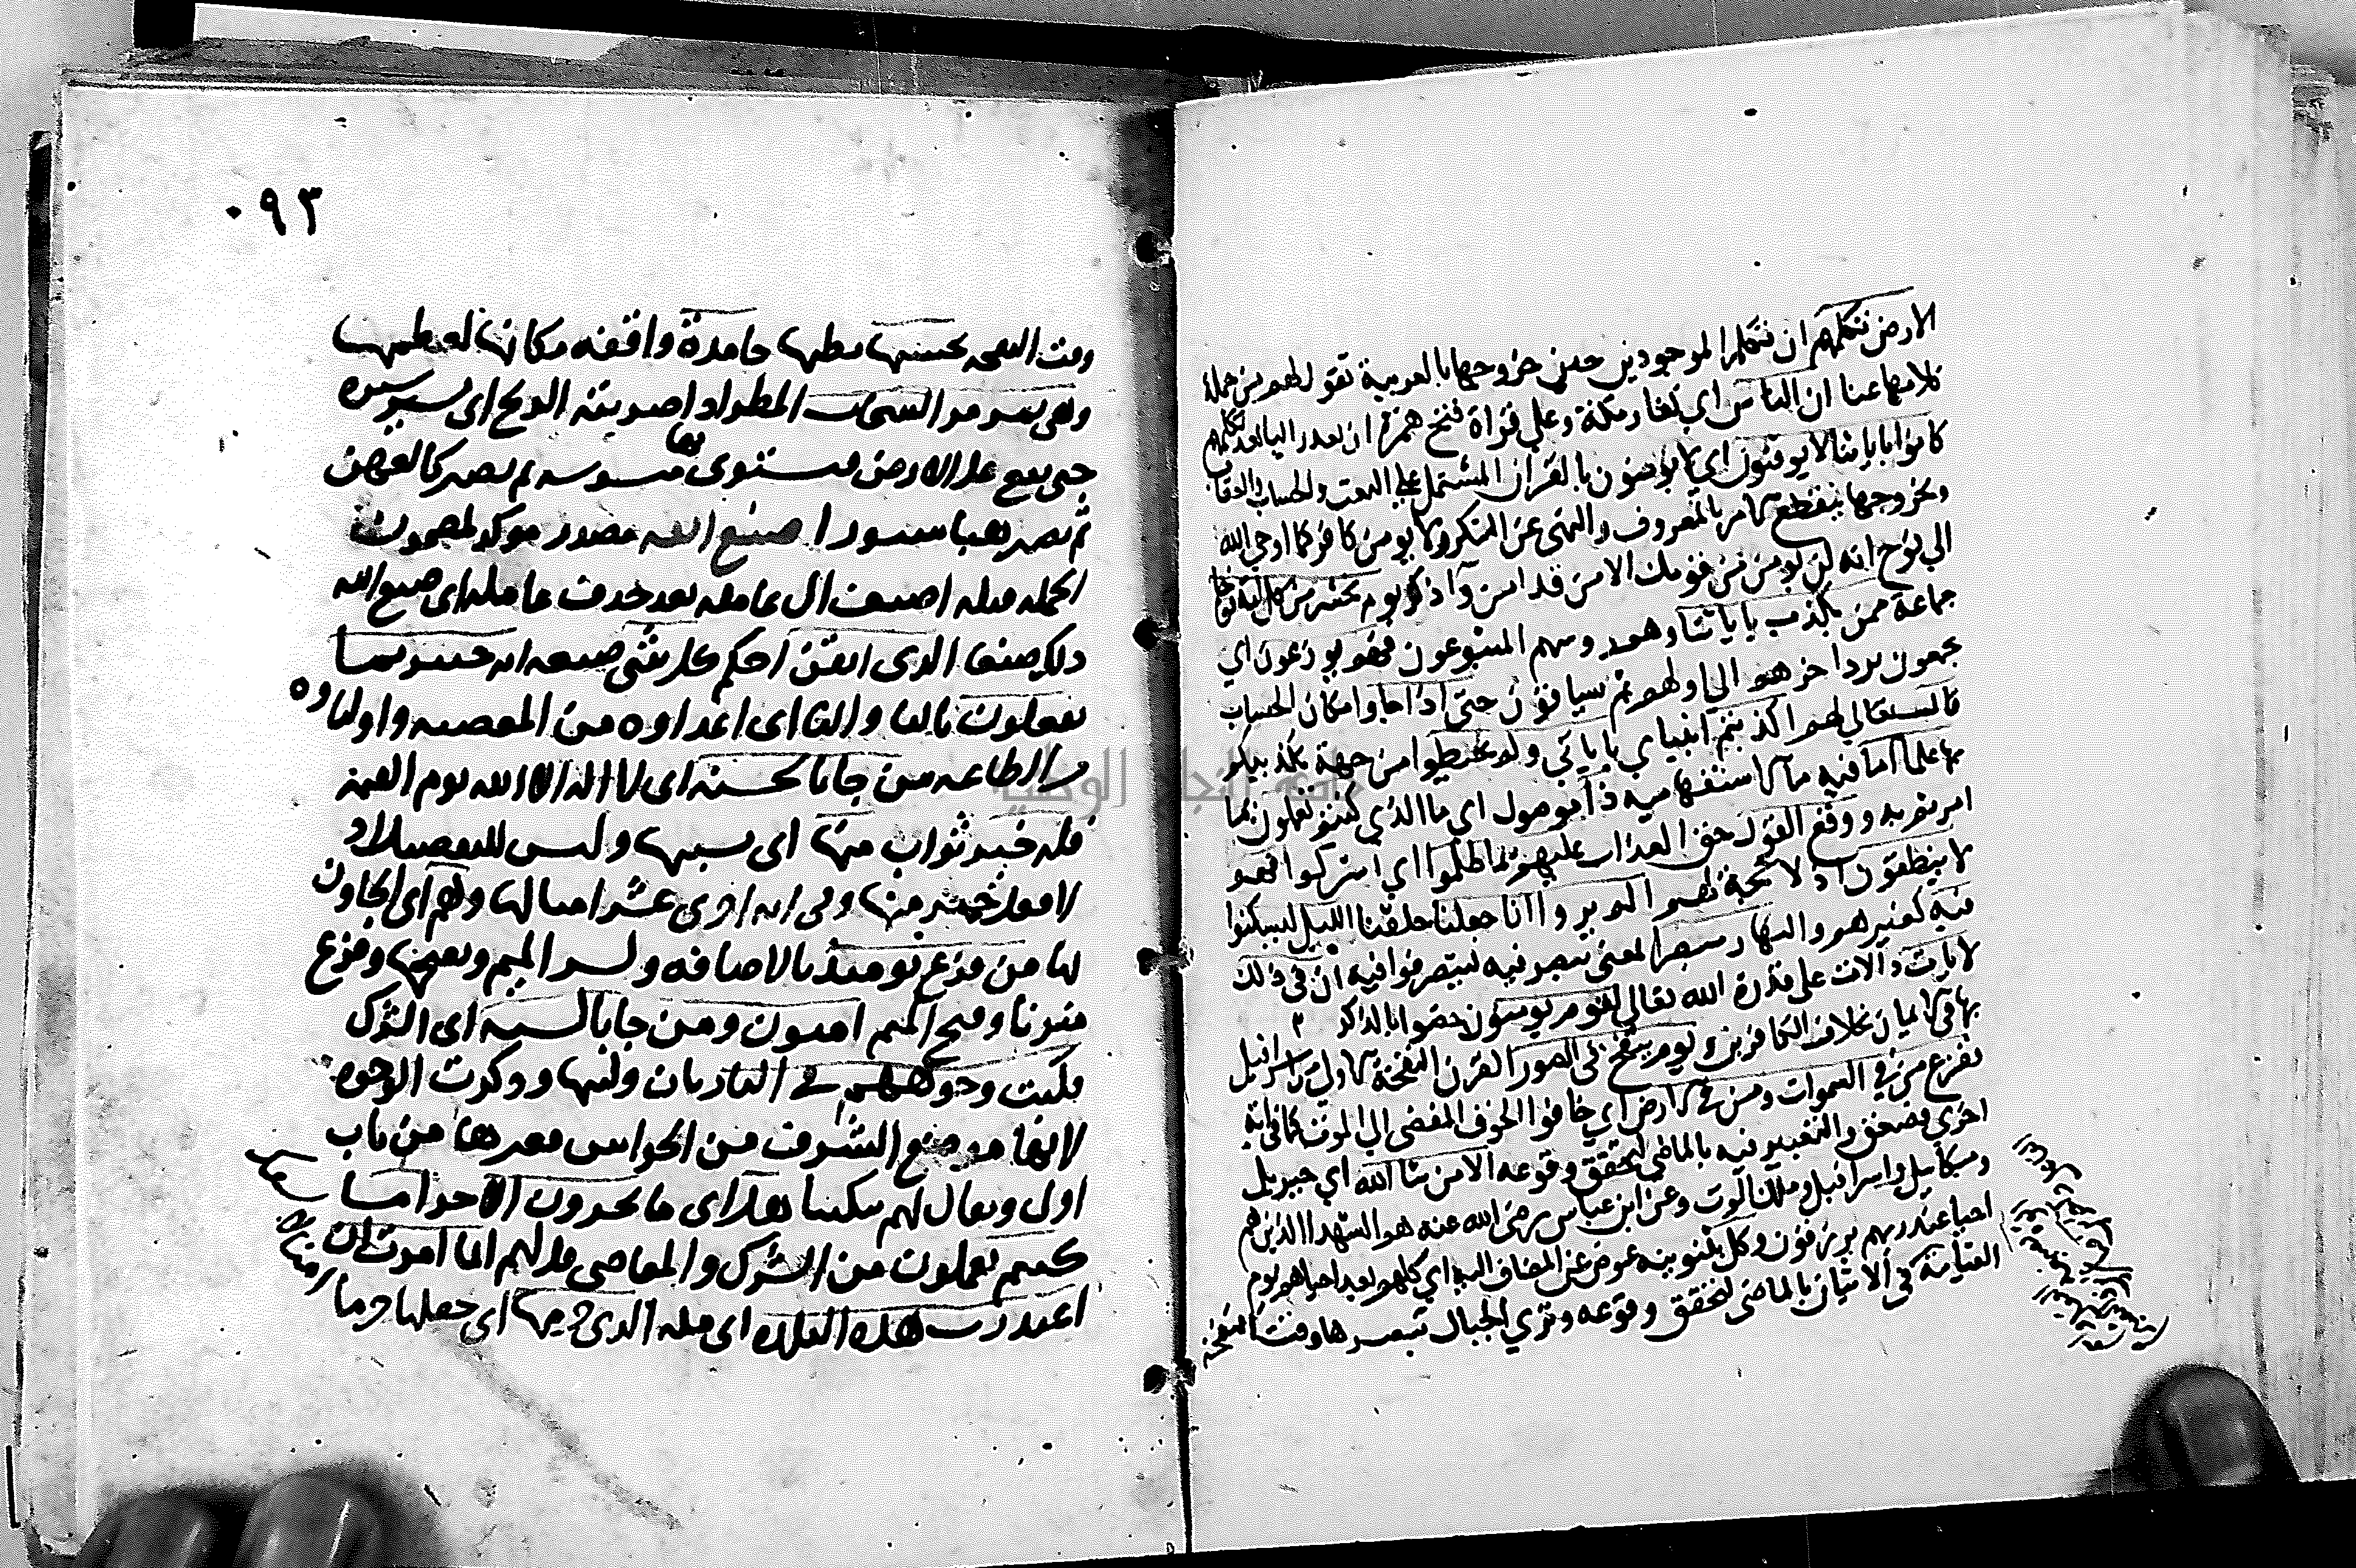 الارض تكلمهم ان تكلم الموجودين حين خروجها بالعربية تقول لهم من جملة
كلامها عنا ان الناس اي كفار مكة وعلي قراة فتح همزة ان تقدر البا بعد تكلمهم
كانوا باياتنا لا يوقنون اي لا يومنون بالقران المشتمل علي البعث والحساب والعقاب
وبخروجها ينقطع الامر بالمعروف والنهي عن المنكر ولا يومن كافر كما اوحي الله
الي نوح انه لن يومن من قومك الا من قد امن واذكر يوم نحشر من كل امة فوجا
جماعة ممن يكذب باياتنا وهم روسهم المتبوعون فهم يوزعون اي
يجمعون برد اخرهم الي اولهم ثم يساقون حتي اذا جاوا مكان الحساب
قال تعالي لهم اكذبتم انبياي باياتي ولم تحيطوا من جهة تكذيبكم
بها علما اما فيه ما الاستفهامية ذا موصول اي ما الذي كنتم تعملون بما
امرتم به ووقع القول حق العذاب عليهم بما ظلموا اي اشركوا فهم
لا ينطقون اذ لا حجة لهم الم يروا انا جعلنا خلقنا الليل ليسكنوا
فيه كغيرهم والنهار مبصرا بمعني يبصر فيه ليتصرفوا فيه ان في ذلك
لايات دلالات علي قدرة الله تعالي لقوم يومنون خصوا بالذكر
بها في الايمان بخلاف الكافرين ويوم ينفخ في الصور القرن النفخة الاولي من اسرافيل
ففزع من في السموات ومن في الارض اي خافوا الخوف المفضي الي الموت كما في اية
اخري فصعق والتعبير فيه بالماضي لتحقق وقوعه الا من شا الله اي جبريل
وميكاييل واسرافيل وملك الموت وعن ابن عباس رضي الله عنه هم الشهدا الذين هم
احيا عند ربهم يرزقون وكل تنوينه عوض عن المضاف اليه اي كلهم بعد احياهم يوم
القيامة في الاتيان بالماضي لتحقق وقوعه وتري الجبال تبصرها وقت النفخة
٠٩٣
وقت النفخه تحسبها تظنها جامدة واقفه مكانها لعظمها
وهي تمر مر السحاب المطر اذا ضربته الريح اي تسير سيره
حتي تقع علي الارض فتستوي بها مبسوسه ثم تصير كالعهن
ثم تصير هبا منثورا صنع الله مصدر موكد لمضمون
الجمله قبله اضيف الي فاعله بعد حذف عامله اي صنع الله
ذلك صنعا الذي اتقن احكم كل شي صنعه انه خبير بما
تفعلون باليا والتا اي اعداوه من المعصيه واولياوه
من الطاعه من جا بالحسنه اي لا اله الا الله يوم القيمه
فله خير ثواب منها اي بسببها وليس للتفضيل اذ
لا فعل خير منها وفي ايه اخري عشر امثالها وهم اي الجاون
بها من فزع يومئذ بالاضافه وكسر الميم وبفتحها وفزع
منونا وفتح الميم امنون ومن جا بالسيه اي الشرك
فكبت وجوههم في النار بان وليتها وذكرت الوجوه
لانها موضع الشرف من الحواس فغيرها من باب
اولي ويقال لهم تبكيتا هل اي ما تجزون الا جزا ما
كنتم تعملون من الشرك والمعاصي قل لهم انما امرت ان
اعبد رب هذه البلده اي مكه الذي حرمها اي جعلها حرما